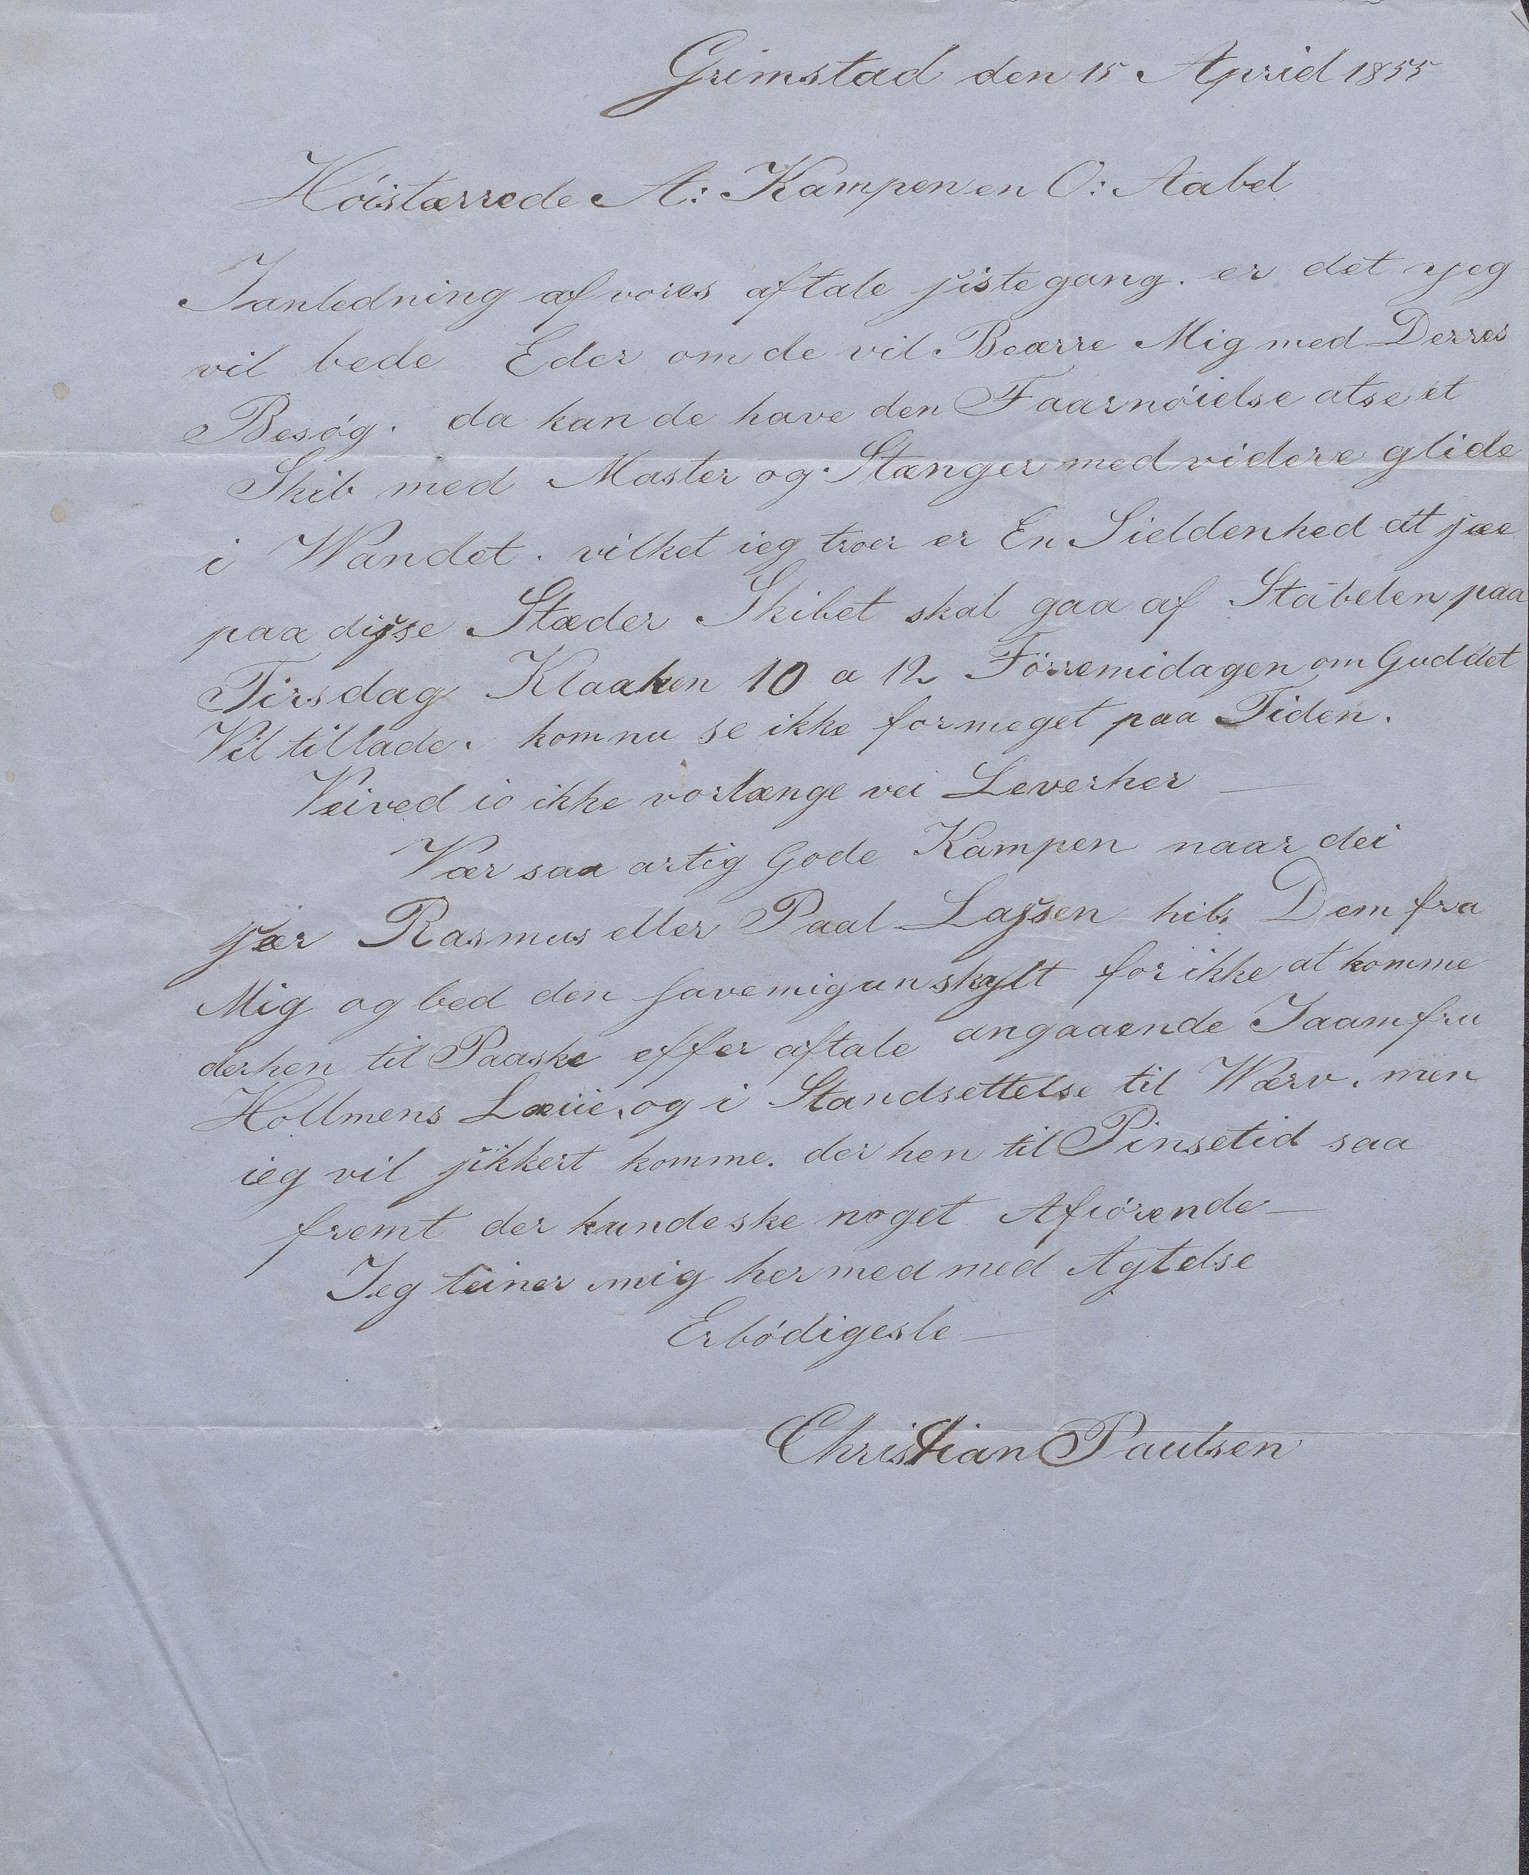 Grimstad den 15 Aprid 1855
Höistærrede A: Kampen en O: Aabel
Ianledning af vores aftale sistegang. er det yeg
vil bede Eder om de vil Beærre Mig med Derres
Besög. da kan de have den Faarnöielse atse et
Skib med Master og Stænger med videre glide
i Wandet. vilket ieg troer er En Sieldenhed att see
paa disse Stæder Skibet skal gaa af Stabelen paa
Tirsdag Klaaken 10 a 12 Förremidagen om Gud det
Vil tillade. kom nu se ikke formeget paa Tiden.
Vei ved io ikke vorlænge vei Leverher
Vær saa artig Gode Kampen naar dei
sær Rasmus eller Paal Lassen hils Dem fra
Mig og bed den havemigunskylt for ikke at komme
derhen til Paaske effer aftale angaaende Jaamfru
Hollmens Læiie, og i Standsettelse til Wærv. men
ieg vil sikkert komme. der hen til Pinsetid saa
fremt der kunde ske noget Afiörende
Jeg teiner mig hermed med Agtelse
Erbödigeste
Christian Paulsen